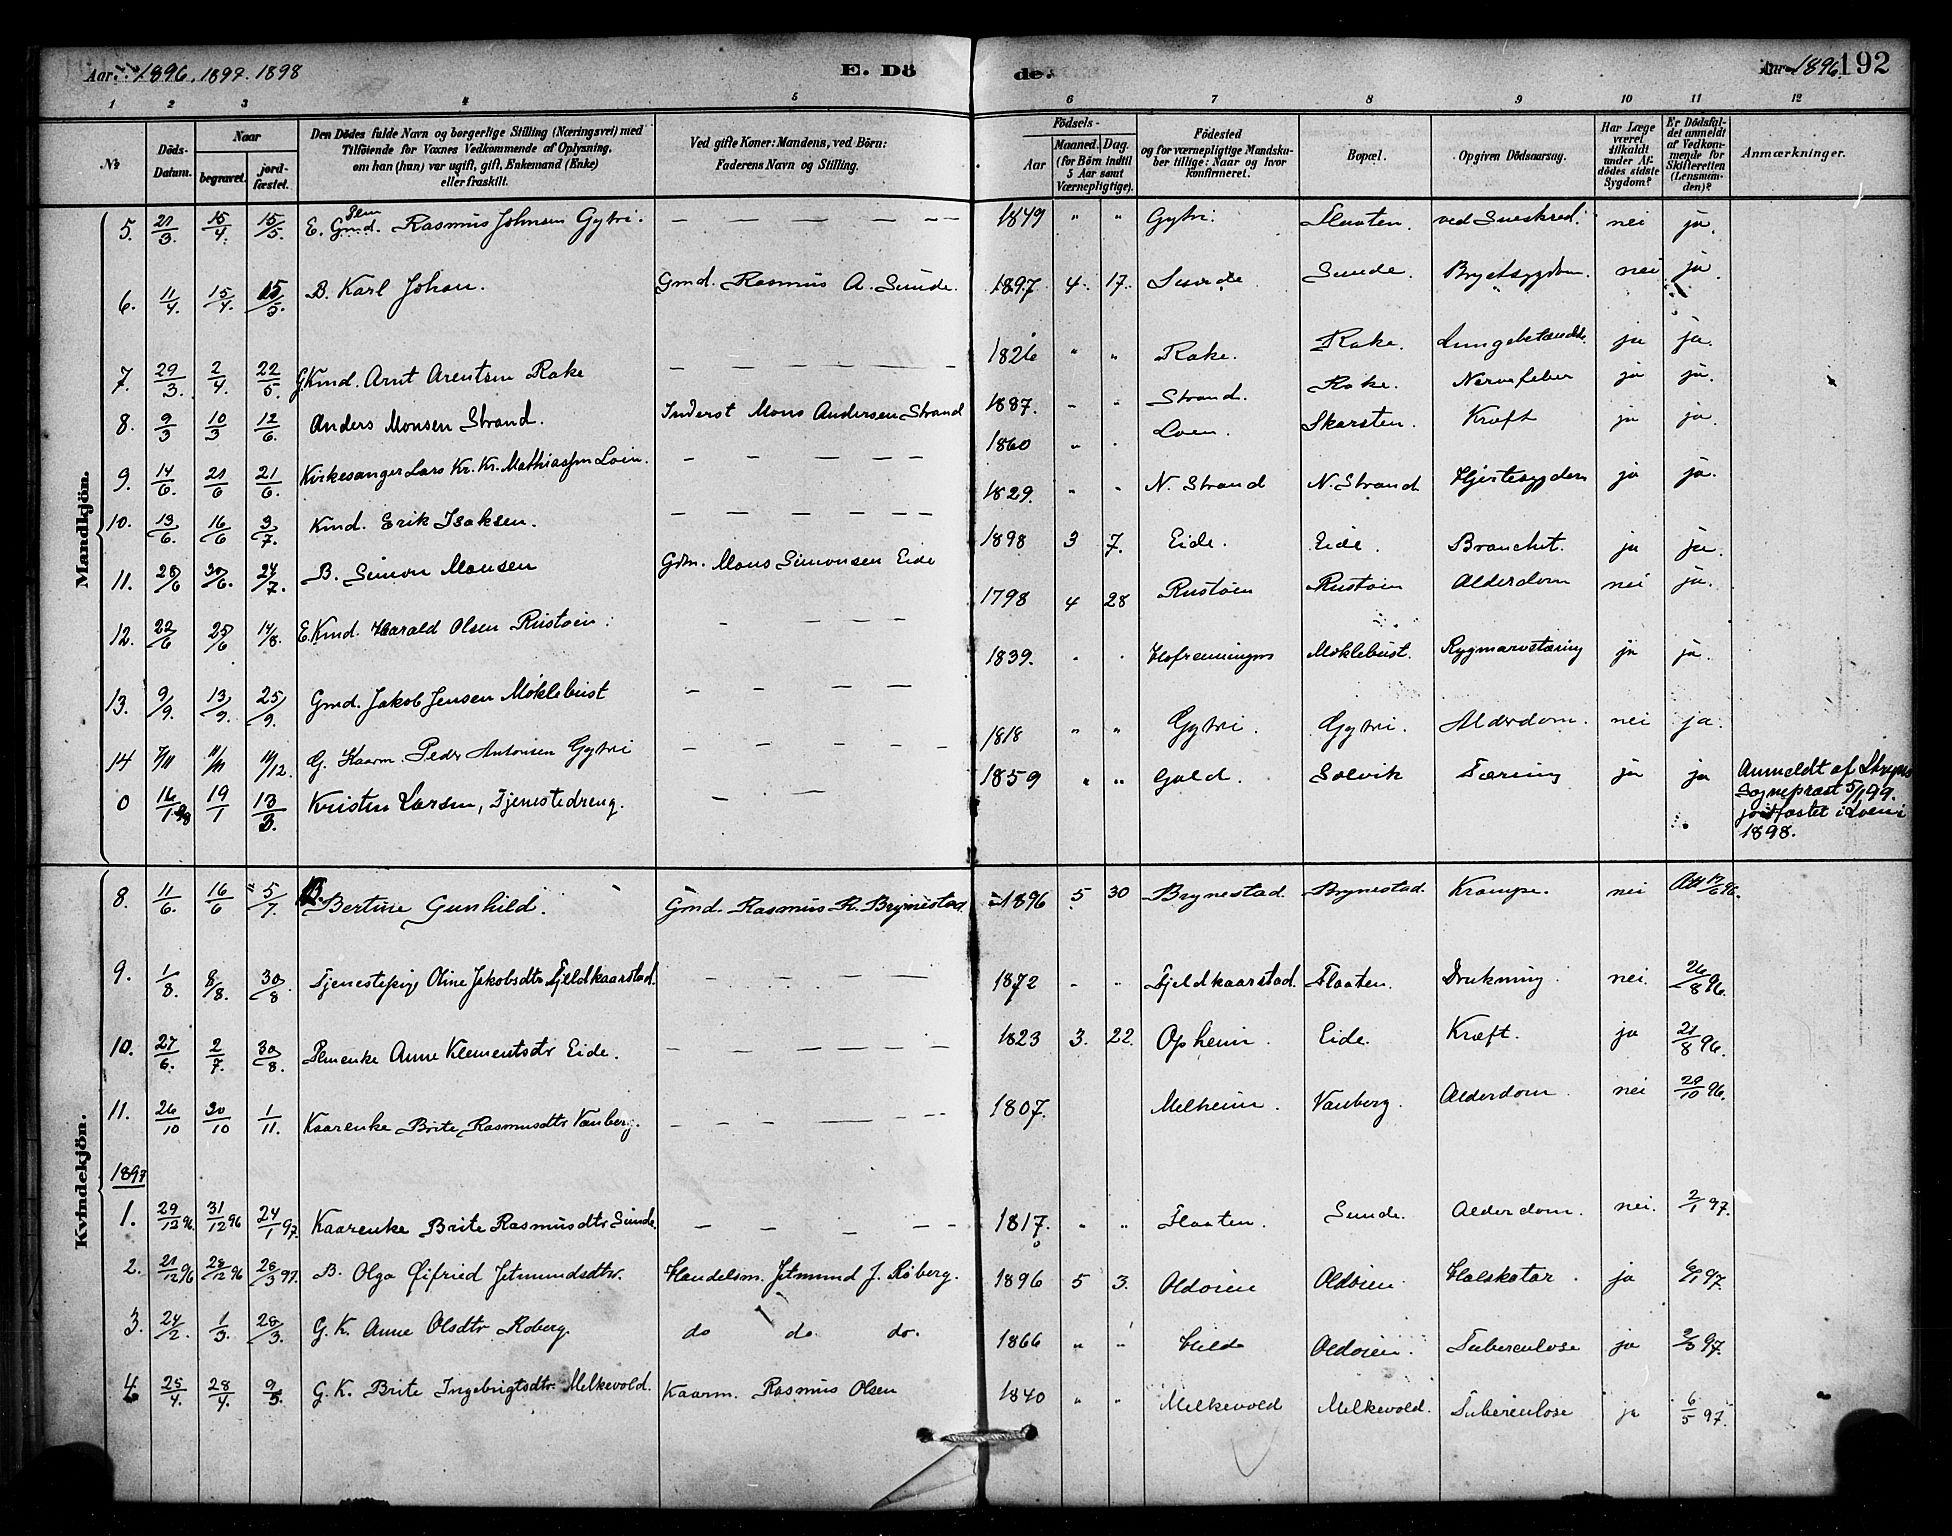 Aar. 1896. 1897. 1898 E. Dö de. Aar 1896. 192
1 2 3 4 5 6 7 8 9 10 11 12
№ Döds-Datum. Naar begravet. jordfæstet. Den Dödes fulde Navn og borgerlige Stilling (Næringsvei) med Tilföiende for Voxnes Vedkommende af Oplysning, om han (hun) var ugift, gift, Enkemand (Enke) eller fraskilt. Ved gifte Koner: Mandens, ved Börn: Faderens Navn og Stilling. Födsels- Aar Maaned. Dag. (for Börn indtil 5 Aar samt Værnepligtige). Födested og for værnepligtige Mandskaber tillige: Naar og hvor konfirmeret. Bopæl. Opgiven Dödsaarsag. Har Læge været tilkaldt under Afdödes sidste Sygdom? Er Dödsfaldet anmeldt af Vedkommende for Skifteretten (Lensmanden)? Anmærkninger.
Mandkjön.
5. 21/3. 15/4. 15/5. E. Gmd. Rasmus Johnsen Gytri. — — — — — — 1849 " " Gytri. Flaaten. ved Sneskred. nei ja.
6. 11/4. 15/4. 15/5. B. Karl Johan. Gmd. Rasmus A. Sunde. 1897 4. 17. Sunde Sunde. Brystsygdom. nei ja.
7. 29/3. 2/4. 22/5. G Kmd. Arnt Arentsen Rake — — — — — 1826 " " Rake. Rake. Lungebetændelse. ja ja.
8. 9/3 10/3 12/6. Anders Monsen Strand. Inderst Mons Andersen Strand 1887. " " Strand. Rake. Nervefeber ja ja.
9. 14/6. 21/6 21/6. Kirkesanger Lars Kr. Kr. Mathiassen Loen. — — — — — 1860 " " Loen. Skarsten. Kræft ja ja.
10. 13/6. 16/6 3/7. Kmd. Erik Isaksen. — — — — — 1829. " " N. Strand N. Strand Hjertesygdom ja ja.
11. 28/6 30/6. 24/7. B. Simon Monsen Gdm. Mons Simonsen Eide 1898 3 7. Eide. Eide. Bronchit. ja ja.
12. 22/6 25/6 14/8. E. Kmd. Harald Olsen Rustøen. — — — — 1798 4 28 Rustøen Rustøen Alderdom nei ja.
13. 9/9. 13/9. 25/9. Gmd. Jakob Jensen Møklebust — — — — 1839. " " Møklebust. Rygmarvstæring ja ja.
14 7/11 11/11 11/12. G. Kaarm. Peder Antonsen Gytri — — — — — 1818 " " Gytri. Gytri. Alderdom. nei ja.
0 16/1 98 19/1 13/3. Kristen Larsen, Tjenestedreng. — — 1859 " " Guld. Solvik Tæring ja ja Anmeldt af Stryns
Sognepræst 5/1 99.
jordfæstet i Loen i
1898.
Kvindekjön.
8. 11/6. 16/6 5/7. B. Bertine Gunhild. Gmd. Rasmus R. Brynestad. 1896 5 30 Brynestad. Brynestad. Krampe. nei
9. 1/8. 8/8. 30/8. Tjenestepige Oline Jakobsdtr Fjeldkaarstad. — — — — 1872 " " Fjeldkaarstad. Flaaten. Drukning. nei. 26/8 96.
10. 27/6. 2/7. 30/8. Enke Anne Klementsdtr Eide. — — — — — — 1823 3. 22. Opheim. Eide. Kræft. ja 21/8 96.
11. 26/10 30/10 1/11. Kaarenke Brite Rasmusdtr Vanberg. — — — — — — 1807. Melheim. Vanberg. Alderdom. nei 29/10 96.
1897
1. 29/12 96. 31/12 96 24/1 97. Kaarenke Brite Rasmusdtr Sunde. — — — — — 1817. " " Flaaten. Sunde. Alderdom. nei. 2/1 97.
2. 21/12 96 28/12 96 28/3 97. B. Olga Øifried Jetmundsdtr. Handelsm. Jetmund J. Røberg. 1896 5 3. Oldøien Oldøien Halskatar. ja 6/1 97.
3. 24/2. 1/3. 28/3. G. K. Anne Olsdtr Roberg. do do. do. 1866 " " Hilde Oldøien. Tuberculose ja 2/3 97.
4. 25/4. 28/4. 9/5. G. K. Brite Ingebrigtsdtr Melkevold. Kaarm. Rasmus Olsen 1840 " " Melkevold Melkevold. Tuberculose ja 6/5 97.